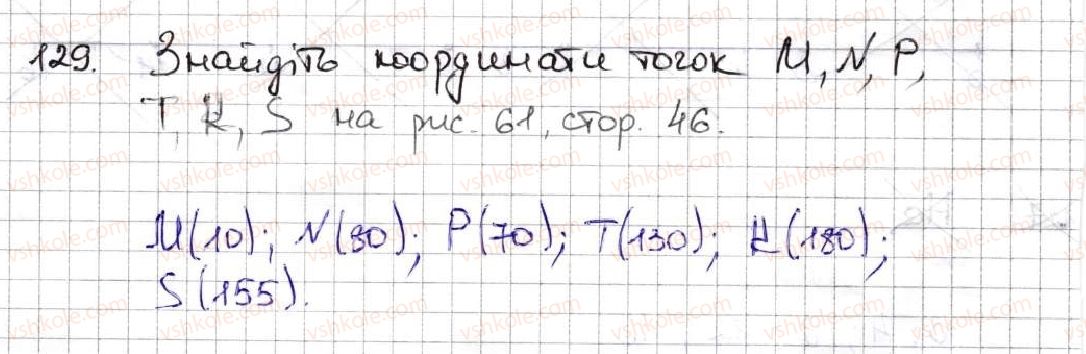 129. Знайдіть координати точок M, N, P,
T, K, S на рис. 61, стор. 46.
M(10); N(30); P(70); T(130); K(180);
S(155).